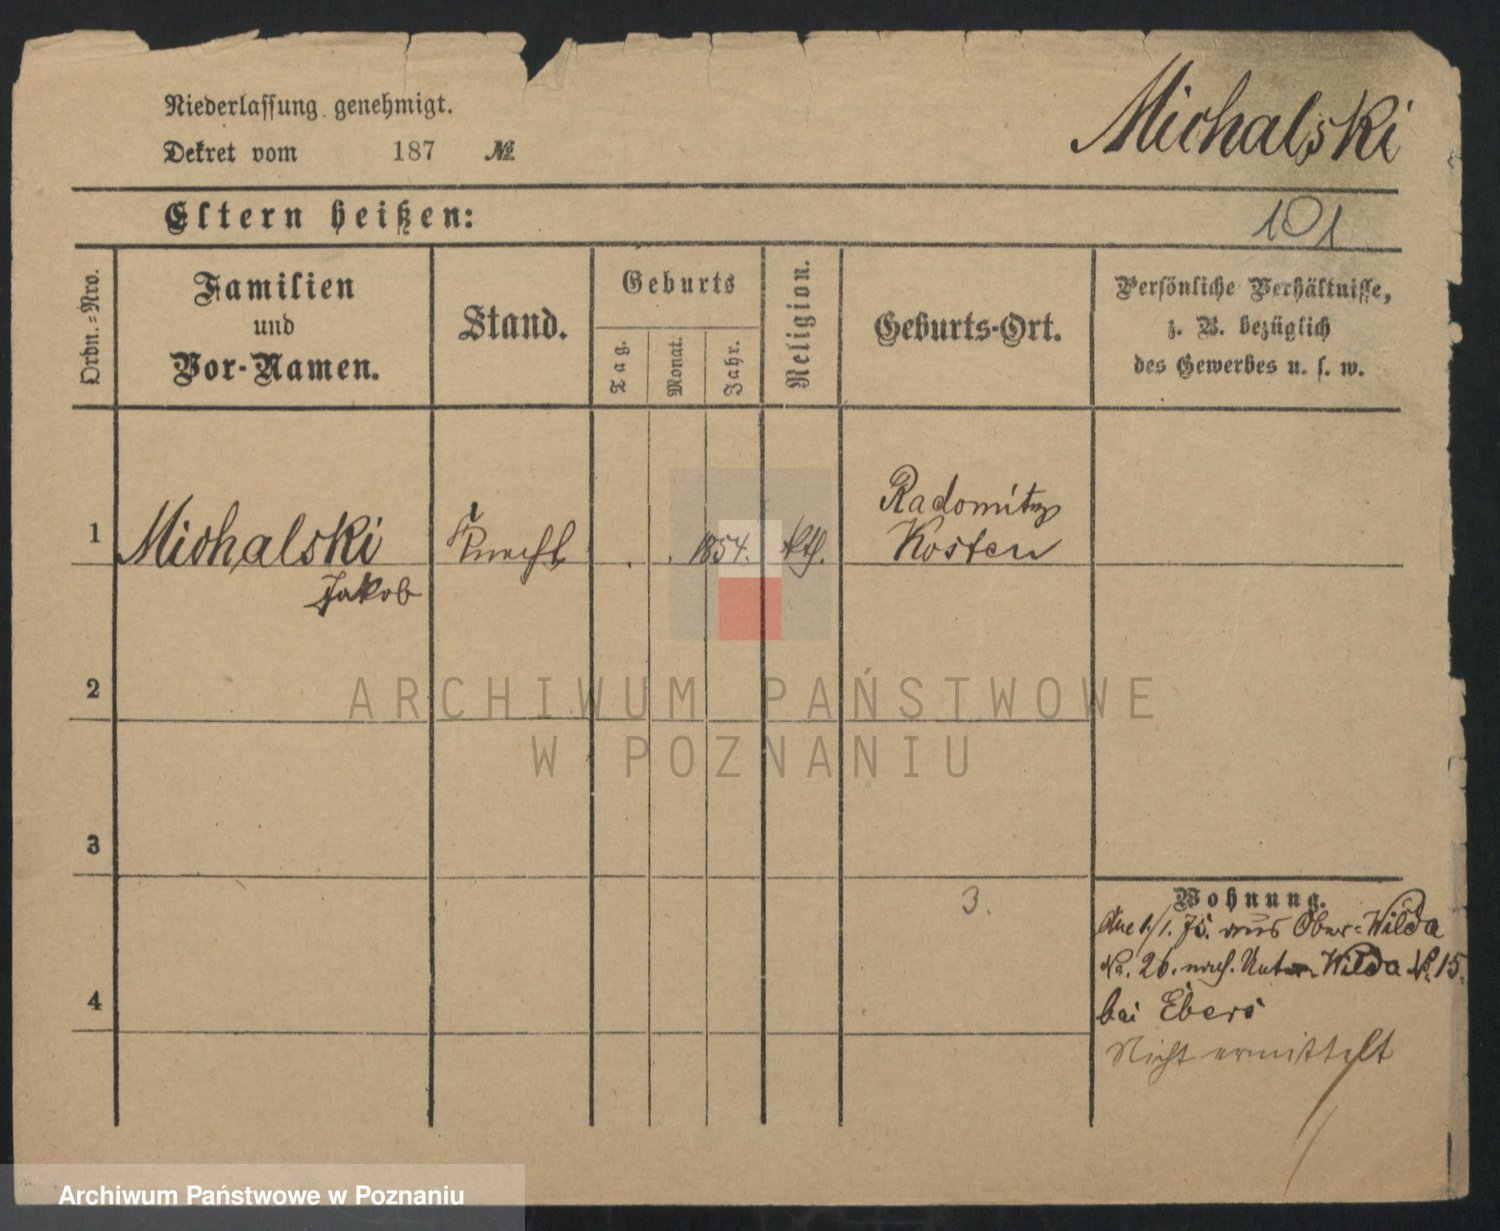 Niederlassung genehmigt.
Dekret vom 187 №
Michalski
Eltern heißen:
101
Ordn.-Nro.
Familien
und
Vor-Namen.
Stand.
Geburts
Tag.
Monat.
Jahr.
Religion.
Geburts-Ort.
Persönliche Verhältnisse,
z. B. bezüglich
des Gewerbes u. s. w.
1 Michalski Knecht 1854. kth. Radomitz
Kosten
Jakob
2
ARCHIWUM PAŃSTWOWE
W POZNANIU
3
3.
Wohnung.
1./1. 75. aus Ober-Wilda
No. 26. nach Unter-Wilda N. 15.
4
bei Ebers
Nicht ermittelt
Archiwum Państwowe w Poznaniu